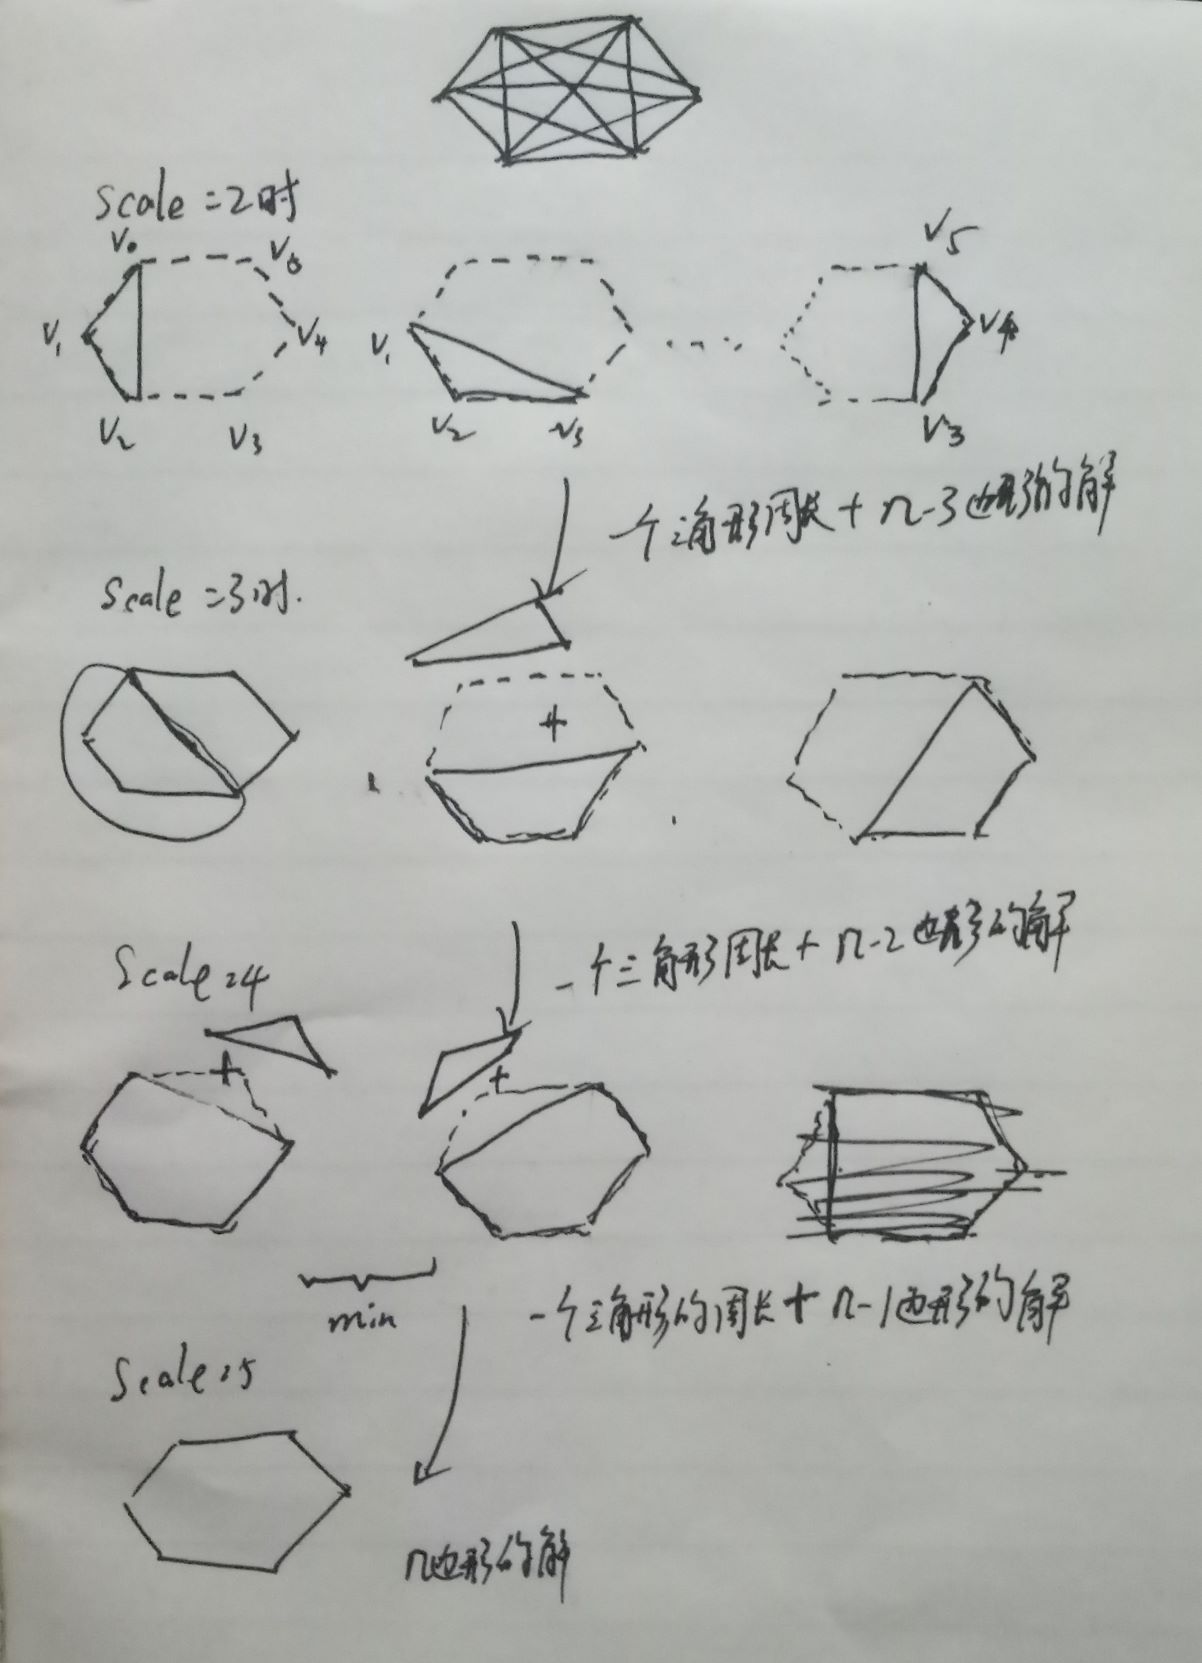 Scale = 2时
V₀ V₅ V₅
V₁ V₄ V₁ V₄
V₂ V₃ V₂ V₃ V₃
一个三角形周长 + n-3边形的解
Scale = 3时.
+
一个三角形周长 + n-2边形的解
Scale=4
+ +
min
一个三角形的周长 + n-1边形的解
Scale=5
n边形的解